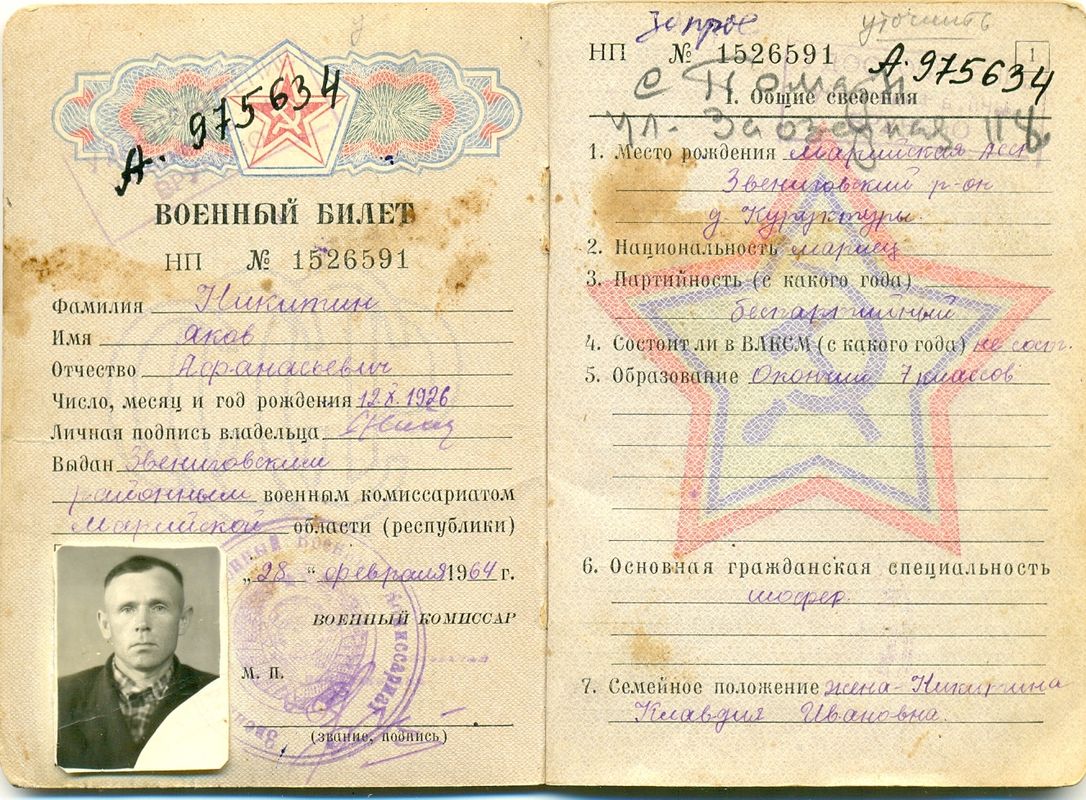 А. 975634
ВОЕННЫЙ БИЛЕТ
НП № 1526591
Фамилия Никитин
Имя Яков
Отчество Афанасьевич
Число, месяц и год рождения 12.X.1926
Личная подпись владельца
Выдан Звениговским
районным военным комиссариатом
Марийской области (республики)
„28“ февраля 1964 г.
ВОЕННЫЙ КОМИССАР
М. П.
(звание, подпись)
Запрос
уточнить
НП № 1526591
А. 975634
1
с Помары
I. Общие сведения
ул. Заозерная 118
1. Место рождения Марийская АССР
Звениговский р-он
д. Куруктуры.
2. Национальность мариец
3. Партийность (с какого года)
беспартийный
4. Состоит ли в ВЛКСМ (с какого года) не сост.
5. Образование Окончил 7 классов
6. Основная гражданская специальность
шофер.
7. Семейное положение жена-Никитина
Клавдия Ивановна.